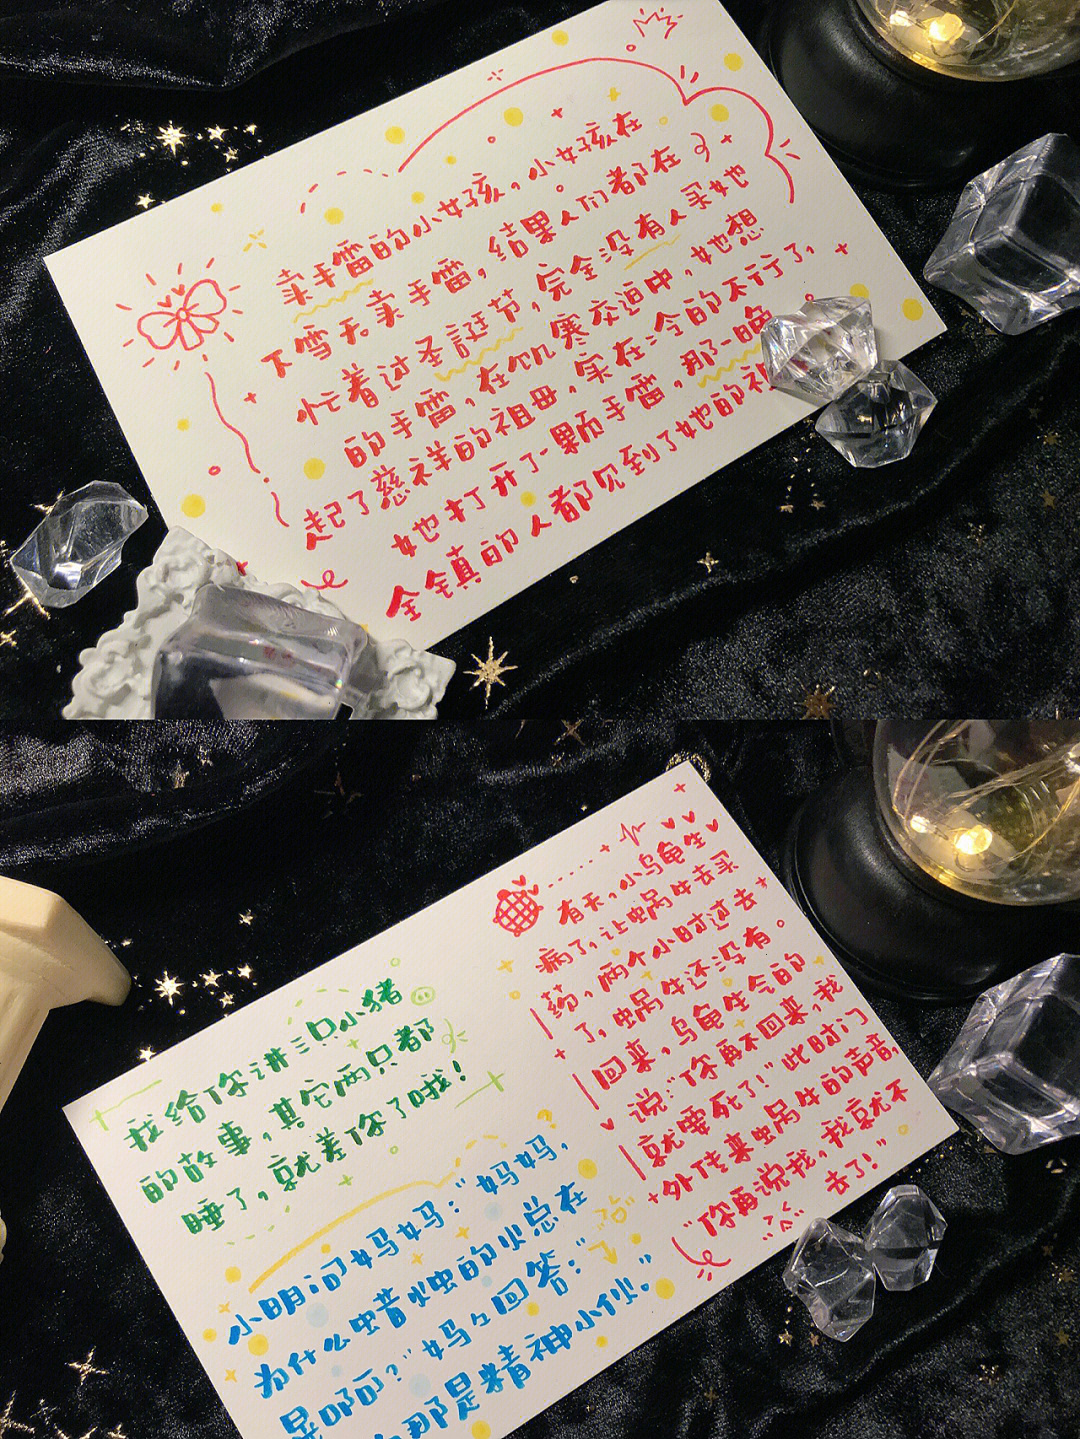 卖手雷的小女孩，小女孩在
下雪天卖手雷，结果人们都在
忙着过圣誔节，完全没有人买她
的手雷，在饥寒交迫中，她想
起了慈祥的祖母，实在是今的不行了，
她打开了一颗手雷，那一晚
全全真的人都见到了她的祖
我给你讲三只小猪
的故事，其它两只都
睡了，就差你了哦！
小明问妈妈："妈妈，
为什么蜡火虫的火总在
晃啊？"妈妈回答："
那是精神小伙。"
有天，小乌龟生
病了，让蜗牛去买
药，两个小时过去
了，蜗牛还没有
回来，乌龟生气的
说："你再不回来，我
就要死了！"此时门
外传来蜗牛的声音，
"你再说我，我就不
去了！"